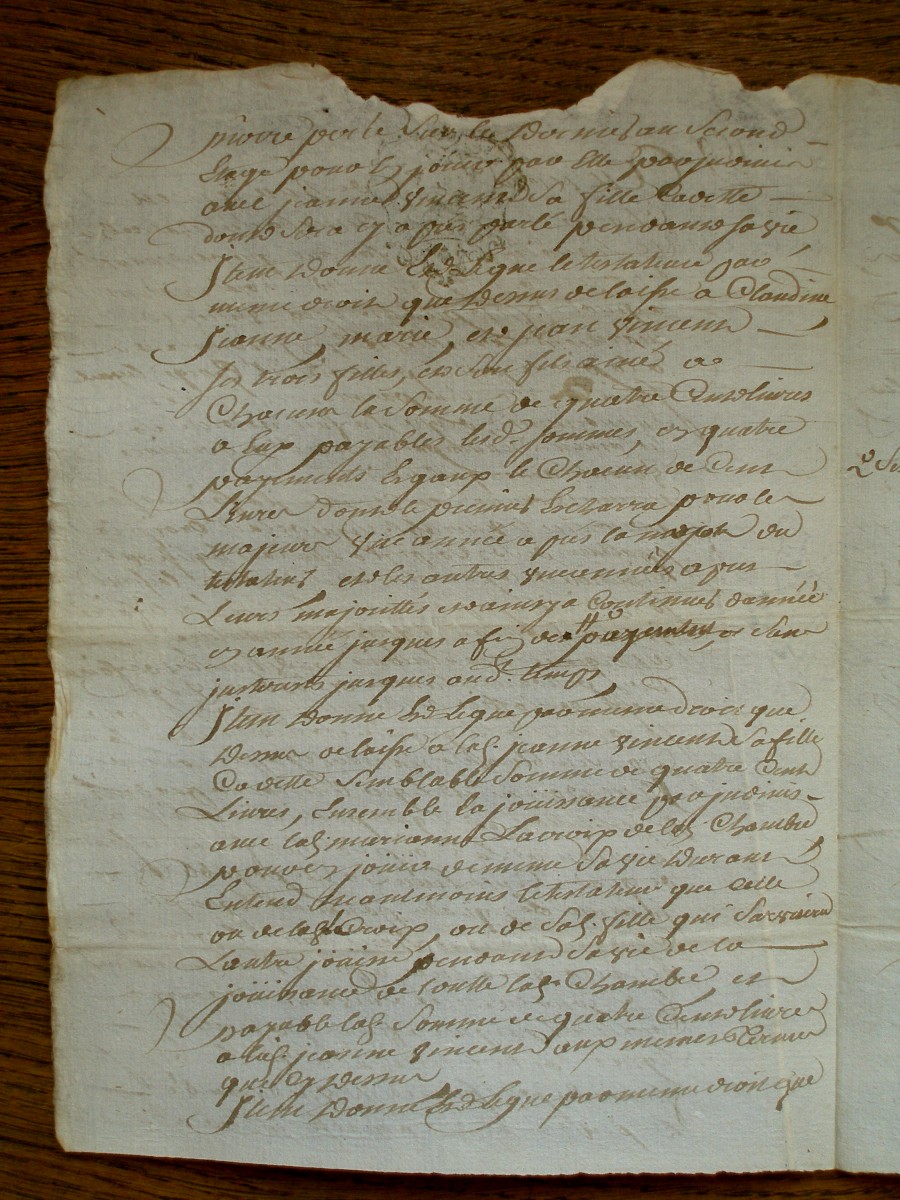 pierre perle sur les dernier au second
Etage pour en jouir par Elle par jndivis
avec jeanne Vincent sa fille Cadette
dont Sera cy apres parlé pendant sa vie
Jtem donne Et Legue le testateur par
meme droit que dessus delaisse a Claudine
Jeanne, marie, et jean Vincent
ses trois filles, et Son fils ainé a
Chacun la Somme de quatre Cent livres
a Eux payables lesd. sommes, en quatre
payements Egaux le Chacun de Cent
Livres dont le premier Echerra pour le
majeur Une année apres la mort du
testateur et les autres une année apres
Leurs majorités et ainsy a Continuer d'année
en année jusques a fin de payement, et sans
jnterets jusques aud. temps
Jtem donne Et Legue par meme droit que
dessus delaisse a lad. jeanne Vincent Sa fille
Cadette Semblable Somme de quatre Cent
Livres, Ensemble la joüissance par jndivis
avec lad. marianne Lacroix de lad. Chambre
pour en joüir de meme Sa vie durant
Entend neantmoins le testateur que Celle
ou de lad. Croix, ou de Sad. fille qui Survivra
Lautre joüisse pendant Sa vie de la
joüissance de toutte lad. Chambre, et
payable lad. Somme de quatre Cent livres
a lad. jeanne Vincent aux memes Termes
que Cy dessus
Jtem donne Et Legue par meme droit que